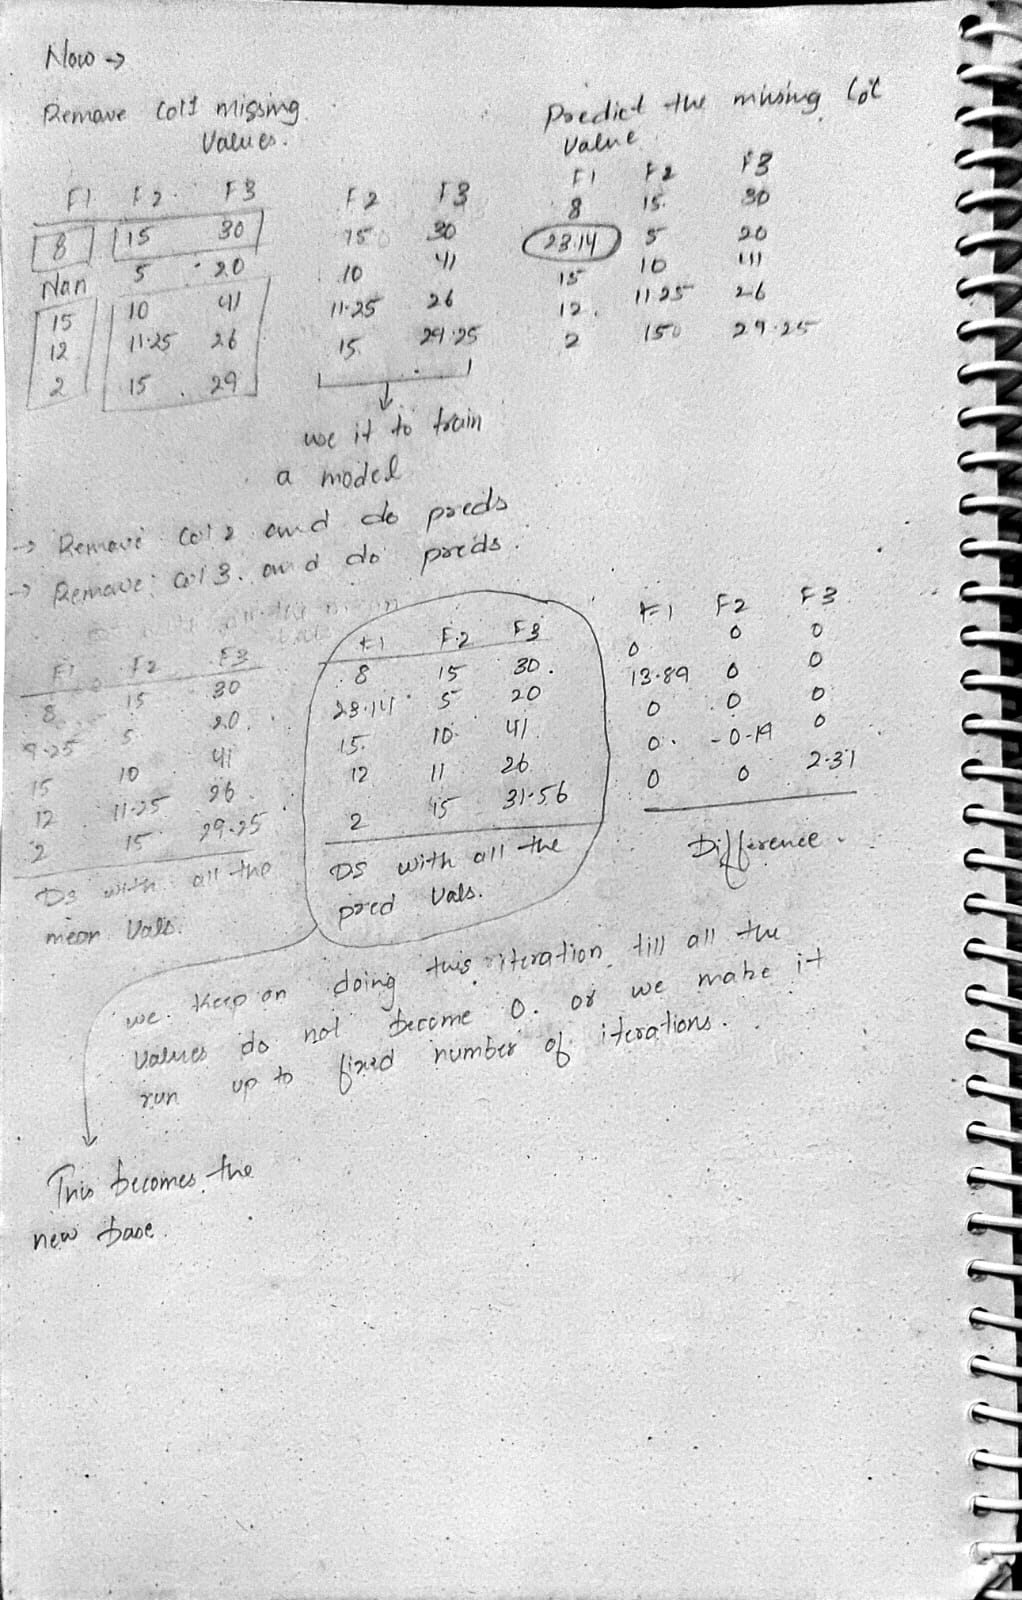 Now →
Remove Col1 missing
Values.
F1 F2 F3
8 15 30
Nan 5 20
15 10 41
12 11.25 26
2 15 29
F2 F3
15 30
10 41
11.25 26
15 29.25
use it to train
a model
Predict the missing Col
Value
F1 F2 F3
8 15 30
23.14 5 20
15 10 41
12. 11.25 26
2 15 29.25
→ Remove Col 2 and do preds
→ Remove Col 3. and do preds.
F1 F2 F3
8 15 30
9.25 5 20.
15 10 41
12 11.25 26.
2 15 29.25
DS with all the
mean Vals.
F1 F2 F3
8 15 30.
23.14 5 20
15. 10 41
12 11 26
2 15 31.56
DS with all the
pred Vals.
F1 F2 F3
0 0 0
13.89 0 0
0 0 0
0 -0.19 0
0 0 2.31
Difference.
we keep on doing this iteration till all the
values do not become 0. or we make it
run up to fixed number of iterations.
This becomes the
new base.